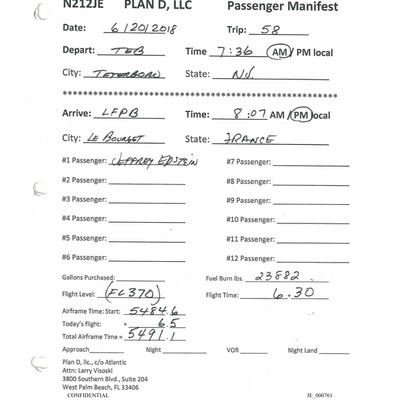 N212JE PLAN D, LLC Passenger Manifest
Date: 6/20/2018 Trip: 58
Depart: TEB Time 7:36 AM / PM local
City: TETERBORO State: NJ.
Arrive: LFPB Time: 8:07 AM / PM local
City: LE BOURGET State: FRANCE
#1 Passenger: JEFFREY EPSTEIN #7 Passenger:
#2 Passenger: #8 Passenger:
#3 Passenger: #9 Passenger:
#4 Passenger: #10 Passenger:
#5 Passenger: #11 Passenger:
#6 Passenger: #12 Passenger:
Gallons Purchased: Fuel Burn lbs. 23882
Flight Level: (FL370) Flight Time: 6.30
Airframe Time: Start: 5484.6
Today's flight: + 6.5
Total Airframe Time = 5491.1
Approach Night VOR Night Land
Plan D, llc., c/o Atlantic
Attn: Larry Visoski
3800 Southern Blvd., Suite 204
West Palm Beach, FL 33406
CONFIDENTIAL JE_000761